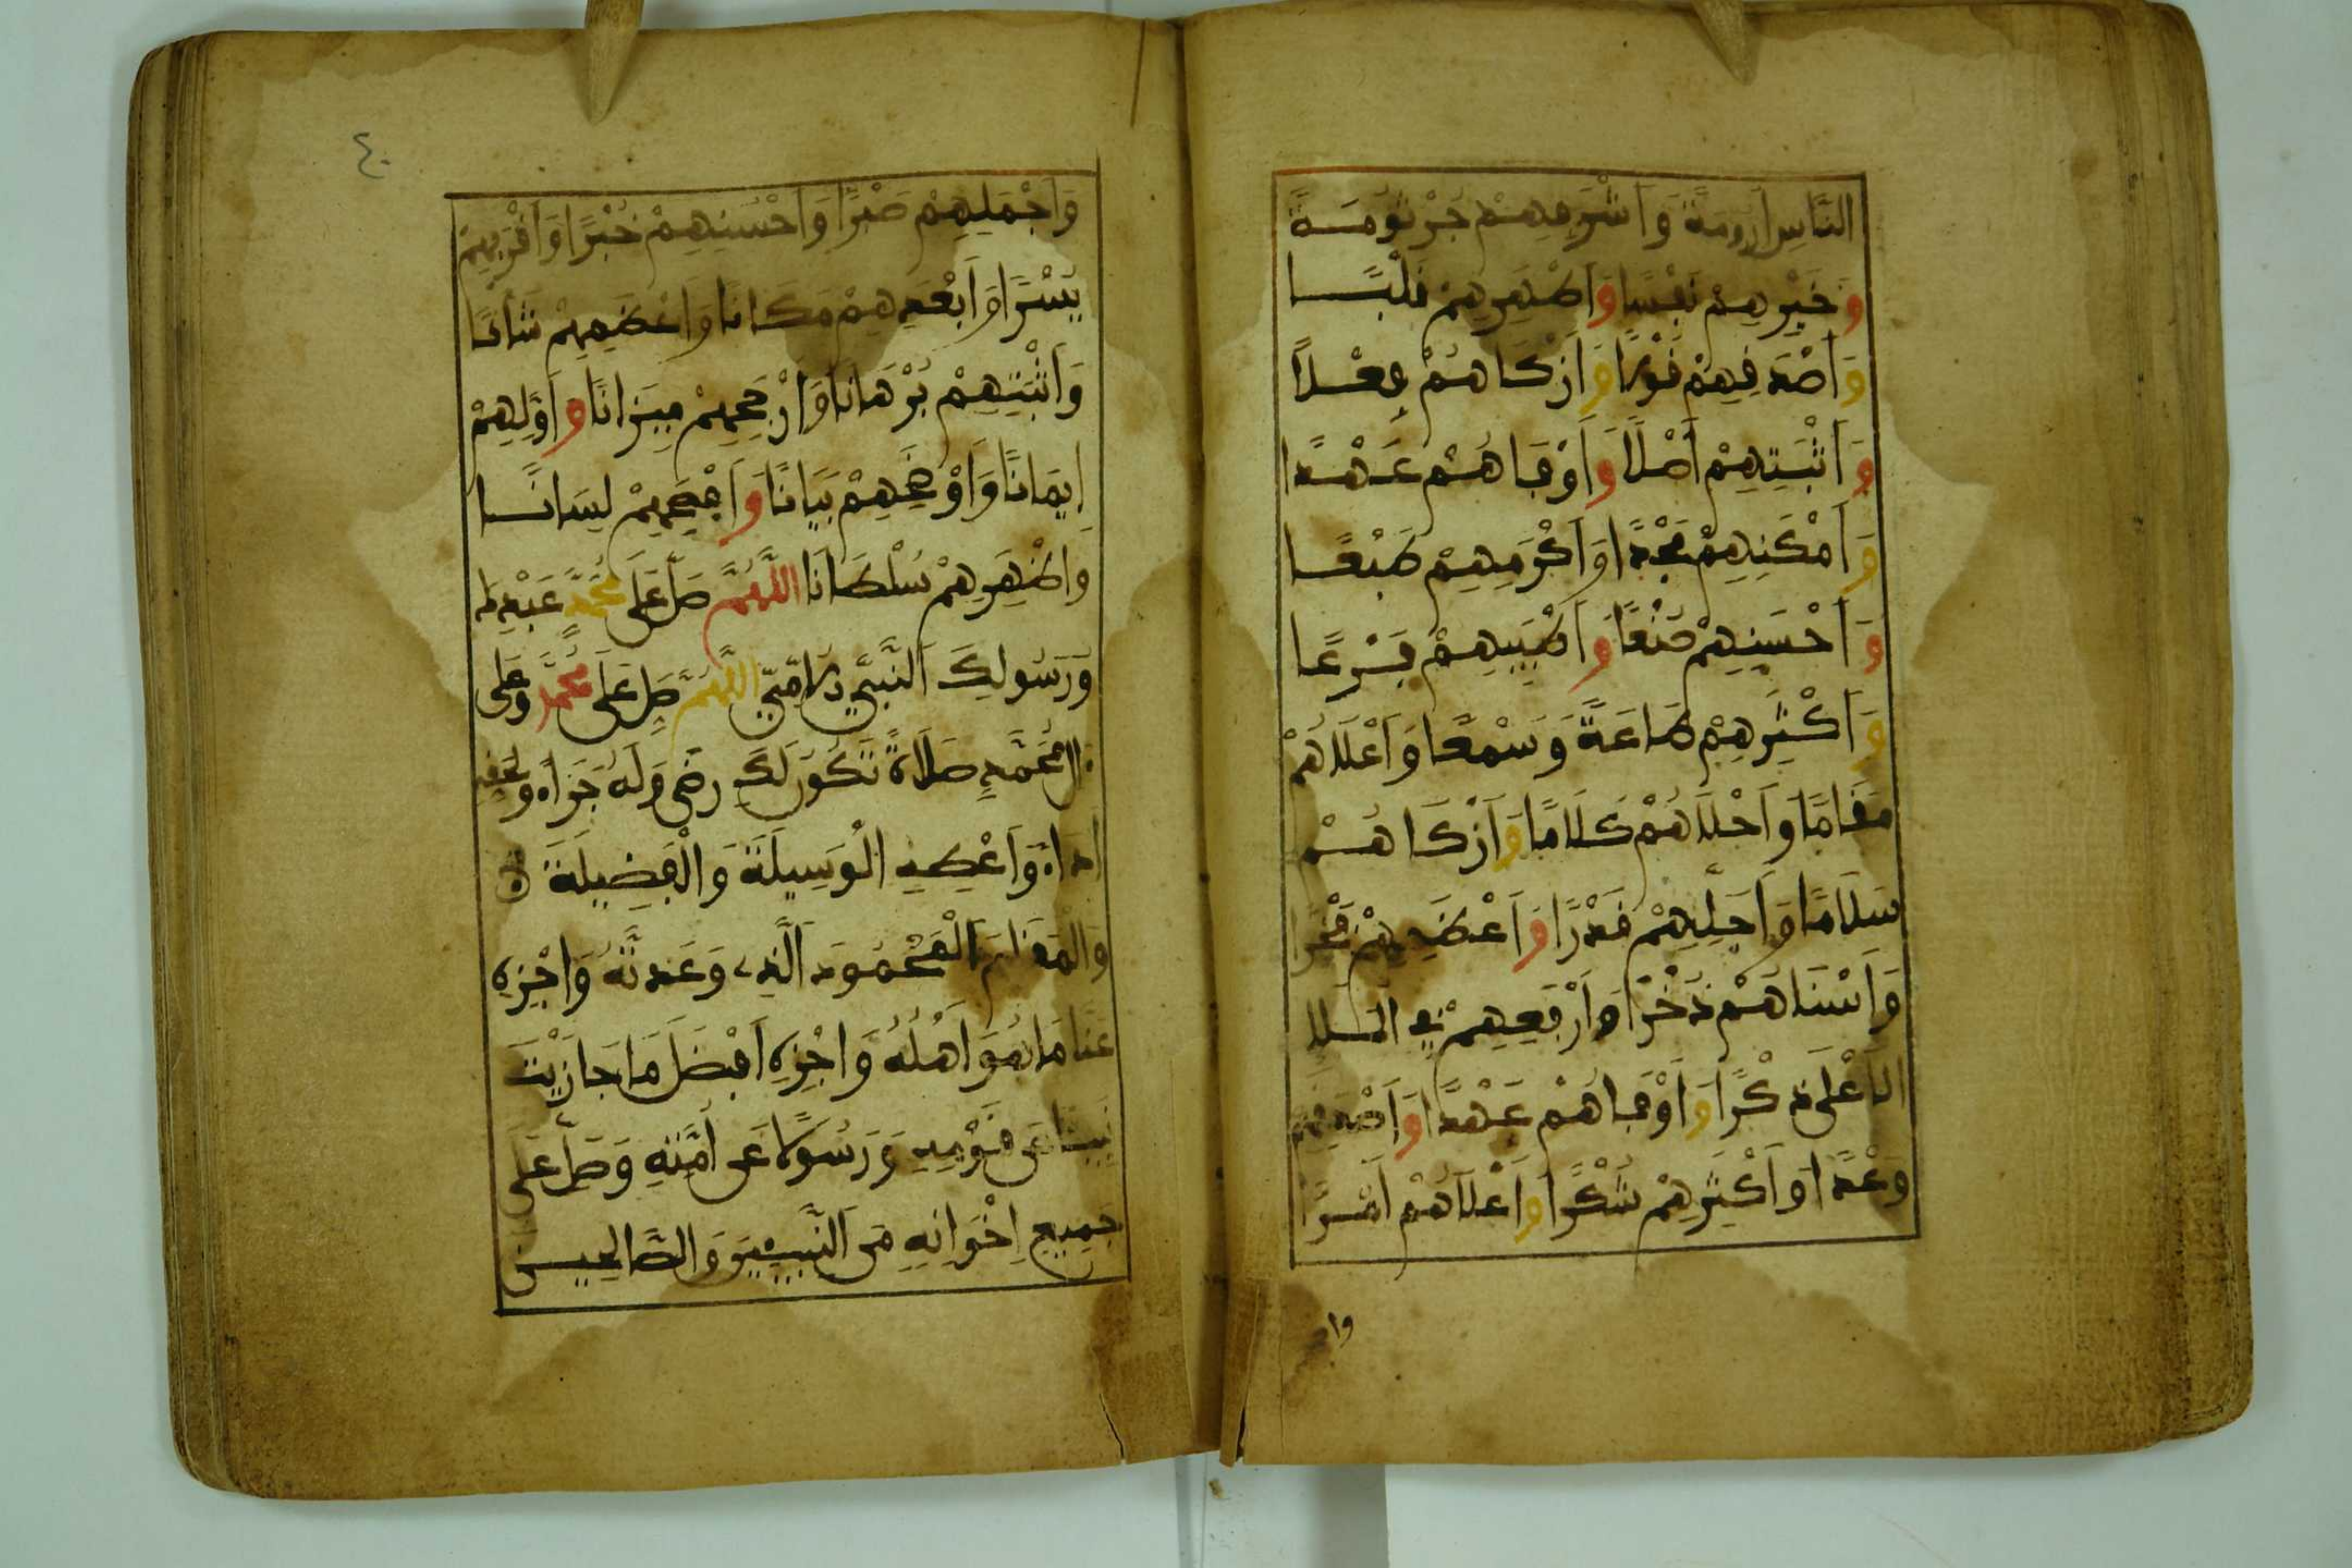 النَّاسِ أَرُومَةً وَأَشْرَفِهِمْ جُرْثُومَةً
وَخَيْرِهِمْ نَفْسًا وَأَطْهَرِهِمْ قَلْبًا
وَأَصْدَقِهِمْ قَوْلًا وَأَزْكَاهُمْ فِعْلًا
وَأَثْبَتِهِمْ أَصْلًا وَأَوْفَاهُمْ عَهْدًا
وَأَمْكَنِهِمْ مَجْدًا وَأَكْرَمِهِمْ طَبْعًا
وَأَحْسَنِهِمْ صُنْعًا وَأَطْيَبِهِمْ فَرْعًا
وَأَكْثَرِهِمْ طَاعَةً وَسَمْعًا وَأَعْلَاهُمْ
مَقَامًا وَأَحْلَاهُمْ كَلَامًا وَأَزْكَاهُمْ
سَلَامًا وَأَجَلِّهِمْ قَدْرًا وَأَعْظَمِهِمْ فَخْرًا
وَأَسْنَاهُمْ ذُخْرًا وَأَرْفَعِهِمْ فِي الْمَلَإِ
الْأَعْلَى ذِكْرًا وَأَوْفَاهُمْ عَهْدًا وَأَصْدَقِهِمْ
وَعْدًا وَأَكْثَرِهِمْ شُكْرًا وَأَعْلَاهُمْ أَمْرًا
وا
٤٠
وَأَجْمَلِهِمْ صَبْرًا وَأَحْسَنِهِمْ خُبْرًا وَأَقْرَبِهِمْ
يُسْرًا وَأَبْعَدِهِمْ مَكَانًا وَأَعْظَمِهِمْ شَأْنًا
وَأَثْبَتِهِمْ بُرْهَانًا وَأَرْجَحِهِمْ مِيزَانًا وَأَوَّلِهِمْ
إِيمَانًا وَأَوْضَحِهِمْ بَيَانًا وَأَفْصَحِهِمْ لِسَانًا
وَأَظْهَرِهِمْ سُلْطَانًا اللَّهُمَّ صَلِّ عَلَى مُحَمَّدٍ عَبْدِكَ
وَرَسُولِكَ النَّبِيِّ الْأُمِّيِّ اللَّهُمَّ صَلِّ عَلَى مُحَمَّدٍ وَعَلَى
آلِ مُحَمَّدٍ صَلَاةً تَكُونُ لَكَ رِضًى وَلَهُ جَزَاءً وَلِحَقِّهِ
أَدَاءً وَأَعْطِهِ الْوَسِيلَةَ وَالْفَضِيلَةَ
وَالْمَقَامَ الْمَحْمُودَ الَّذِي وَعَدْتَهُ وَاجْزِهِ
عَنَّا مَا هُوَ أَهْلُهُ وَاجْزِهِ أَفْضَلَ مَا جَازَيْتَ
نَبِيًّا عَنْ قَوْمِهِ وَرَسُولًا عَنْ أُمَّتِهِ وَصَلِّ عَلَى
جَمِيعِ إِخْوَانِهِ مِنَ النَّبِيِّينَ وَالصَّالِحِينَ